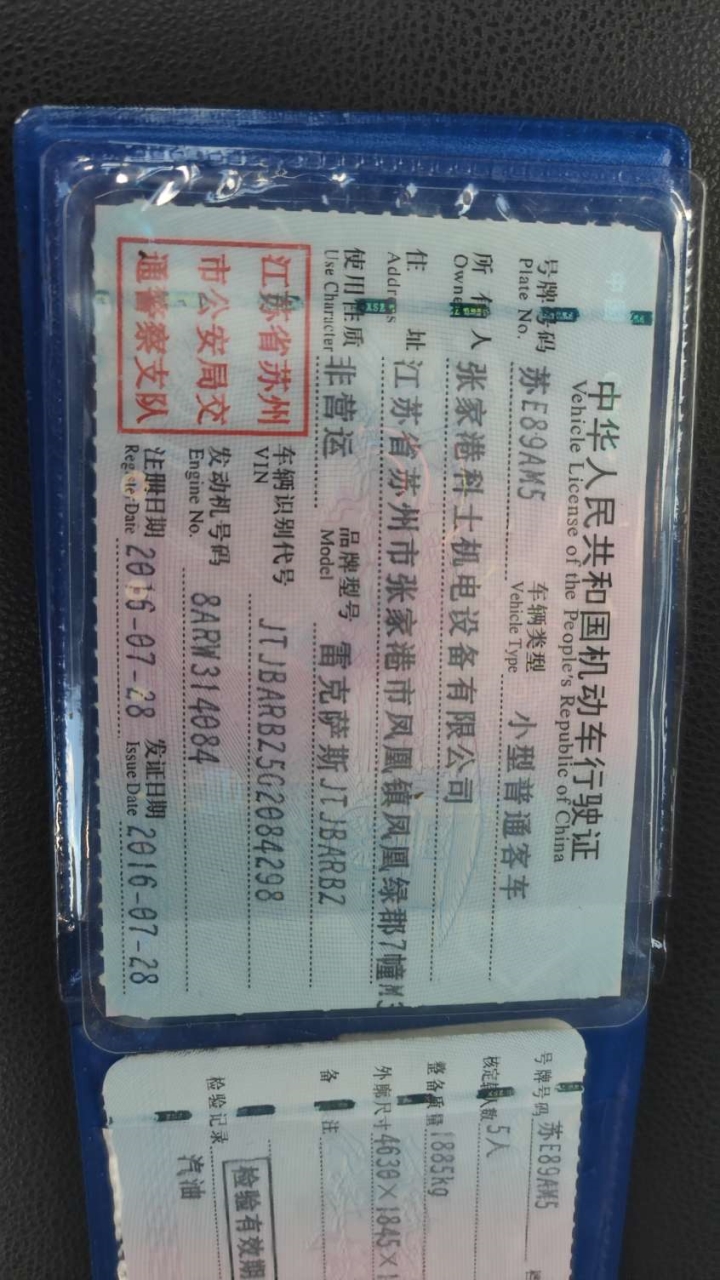 中华人民共和国机动车行驶证
Vehicle License of the People's Republic of China
号牌号码 苏E89AM5 车辆类型 小型普通客车
Plate No. Vehicle Type
所有人 张家港科士机电设备有限公司
Owner
住址 江苏省苏州市张家港市凤凰镇凤凰绿郡7幢M3
Address
使用性质 非营运 品牌型号 雷克萨斯JTJBARBZ
Use Character Model
江苏省苏州
市公安局交
通警察支队
车辆识别代号 JTJBARBZ5G2084298
VIN
发动机号码 8ARW314084
Engine No.
注册日期 2016-07-28 发证日期 2016-07-28
Register Date Issue Date
号牌号码 苏E89AM5
核定载人数 5人
整备质量 1885kg
外廓尺寸 4630×1845×1
备注
检验有效期
检验记录
汽油